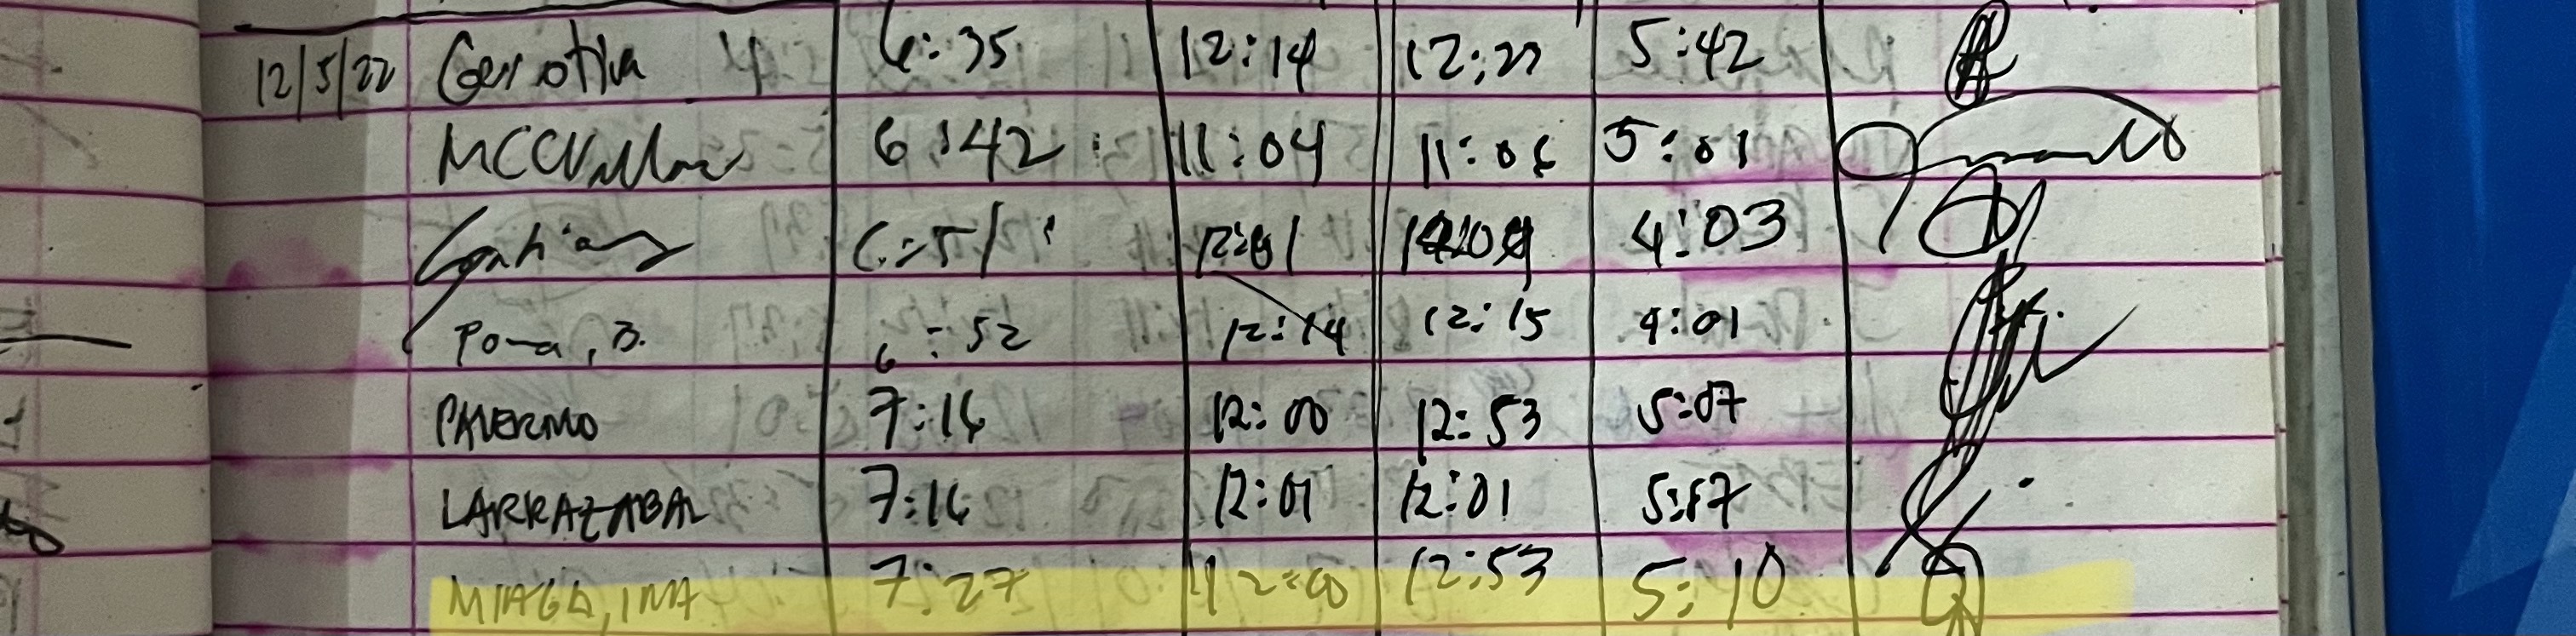 12/5/22 6:35 12:14 12:23 5:42
6:42 11:04 11:06 5:01
6:51 12:01 4:03
Poma, B. 6:52 12:14 12:15 4:01
PALERMO 7:16 12:00 12:53 5:07
LARRAZABAL 7:16 12:01 12:01 5:17
MIAGA, IMA 7:27 12:00 12:53 5:10